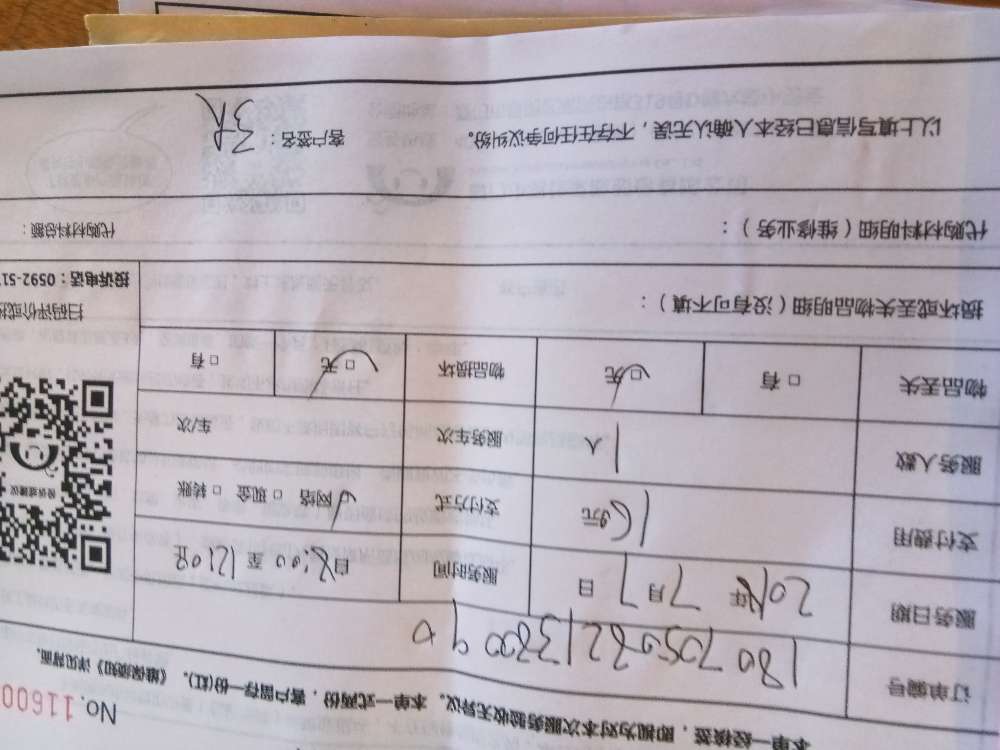 No. 11600
本单一经核签，即视为对本次服务验收无异议。本单一式两份，客户留存一份(红)。《继保须知》详见背面。
订单编号 180705082138009 0
服务日期 2018年 7月 7日 服务时间 自8:00 至 12:02 止
支付费用 169元 支付方式 □ 网络 □ 现金 □ 转账
服务人数 1人 服务车次 车/次
物品丢失 □ 有 □ 无 物品损坏 □ 无 □ 有
损坏或丢失物品明细（没有可不填）：
扫码评价或投
投诉电话：0592-51
代购材料明细（维修业务）： 代购材料总额：
以上填写信息已经本人确认无误，不存在任何争议纠纷。 客户签名：